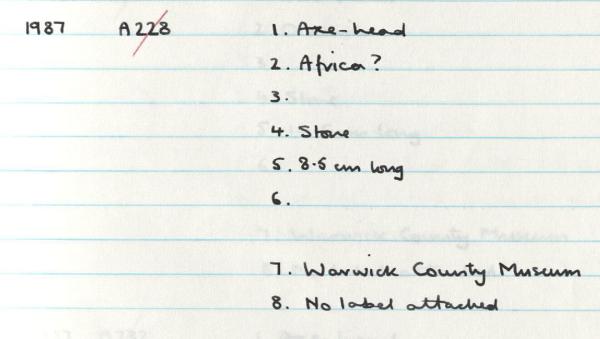 1987 A228 1. Axe-head
2. Africa?
3.
4. Stone
5. 8.5 cm long
6.
7. Warwick County Museum
8. No label attached